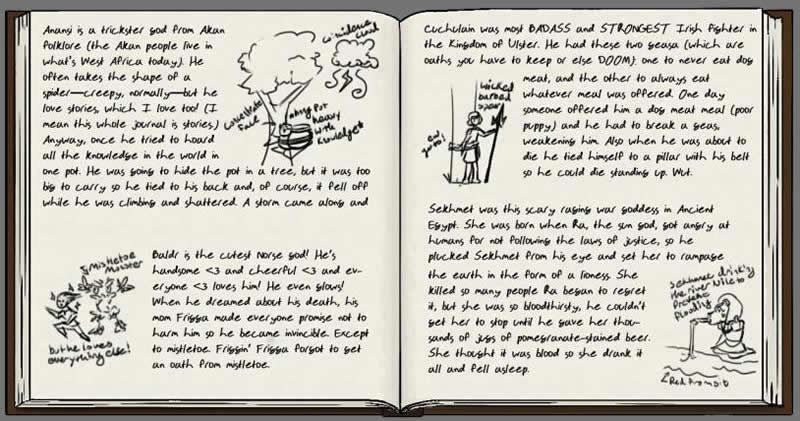 Anansi is a trickster god from Akan
folklore (the Akan people live in
what's West Africa today). He
often takes the shape of a
spider—creepy, normally—but he
love stories, which I love too! (I
mean this whole journal is stories.)
Anyway, once he tried to hoard
all the knowledge in the world in
one pot. He was going to hide the pot in a tree, but it was too
big to carry so he tied to his back and, of course, it fell off
while he was climbing and shattered. A storm came along and
cloud
face
pot
heavy
with
knowledge
Baldr is the cutest Norse god! He's
handsome <3 and cheerful <3 and ev-
eryone <3 loves him! He even glows!
When he dreamed about his death, his
mom Frigga made everyone promise not to
harm him so he became invincible. Except
to mistletoe. Friggin' Frigga forgot to get
an oath from mistletoe.
mistletoe
monster
but he loves
everything else!
Cuchulain was most BADASS and STRONGEST Irish fighter in
the Kingdom of Ulster. He had these two geasa (which are
oaths you have to keep or else DOOM): one to never eat dog
meat, and the other to always eat
whatever meal was offered. One day
someone offered him a dog meat meal (poor
puppy) and he had to break a geas,
weakening him. Also when he was about to
die he tied himself to a pillar with his belt
so he could die standing up. Wut.
wicked
barbed
spear
Sekhmet was this scary raging war goddess in Ancient
Egypt. She was born when Ra, the sun god, got angry at
humans for not following the laws of justice, so he
plucked Sekhmet from his eye and set her to rampage
the earth in the form of a lioness. She
killed so many people Ra began to regret
it, but she was so bloodthirsty, he couldn't
get her to stop until he gave her thou-
sands of jugs of pomegranate-stained beer.
She thought it was blood so she drank it
all and fell asleep.
Sekhmet drinking
the river Nile to
prevent
flooding
Red from